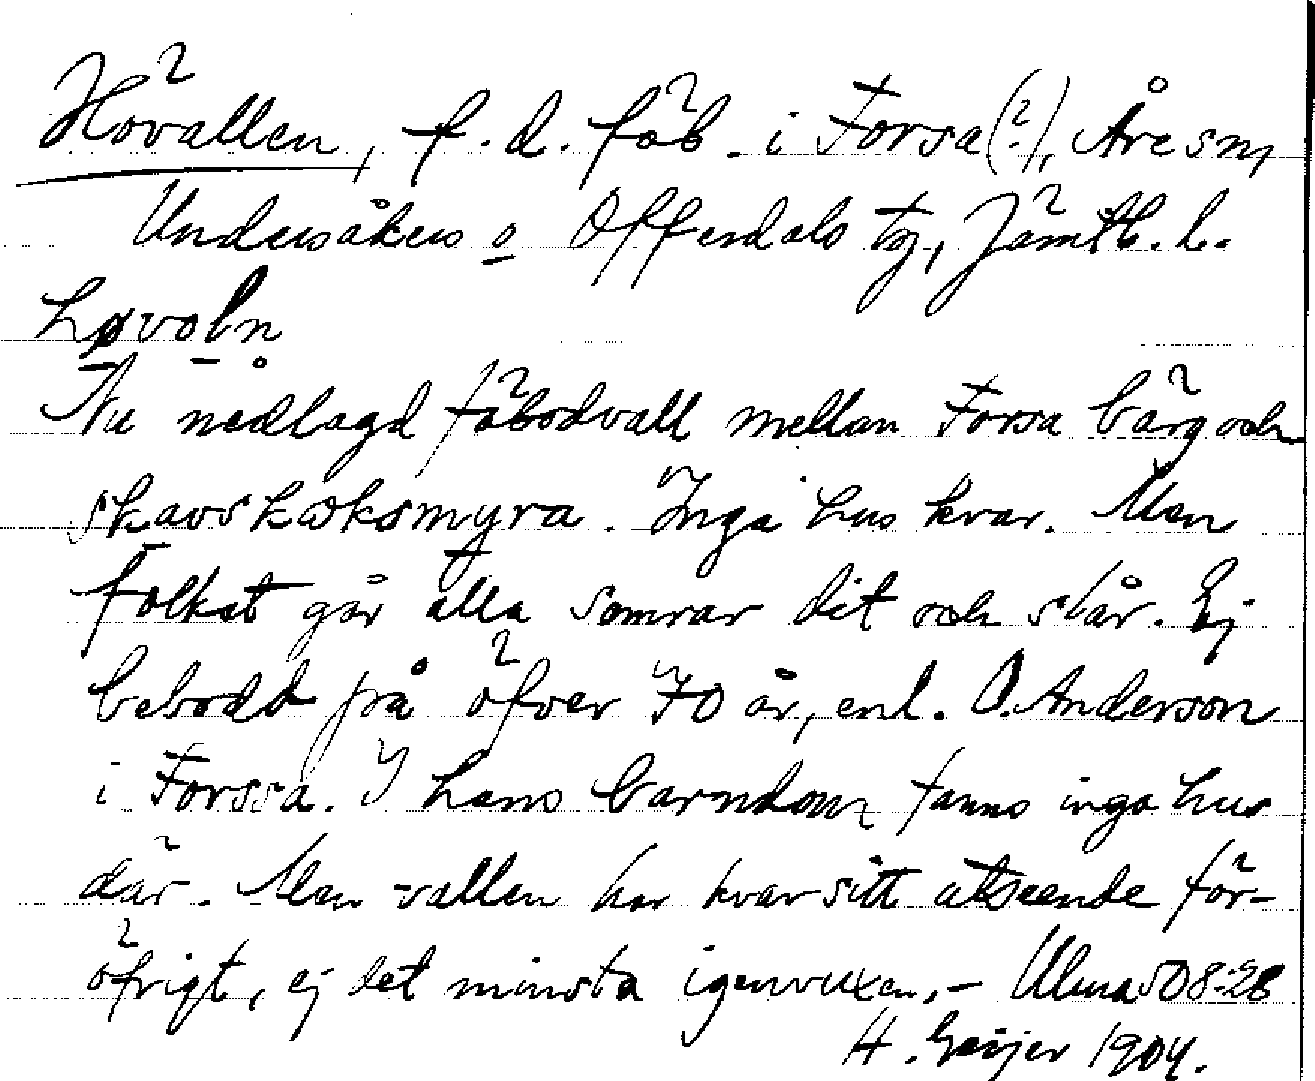 Hövallen, f.d. fäb. i Forsa(?), Åre sn,
Undersåkers o Offerdals tg, Jämtl. l.
høvoln
Nu nedlagd fäbodvall mellan Forsa bärg och
skavskæksmyra. Inga hus kvar. Men
folket går alla somrar dit och slår. Ej
bebodd på öfver 70 år, enl. O. Anderson
i Forssa. I hans barndom fanns inga hus
där. Men vallen har kvar sitt utseende för-
öfrigt, ej det minsta igenvuxen. – Ulma 508:28
H. Geijer 1904.